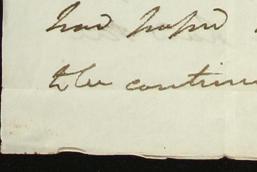 had passed
the continu